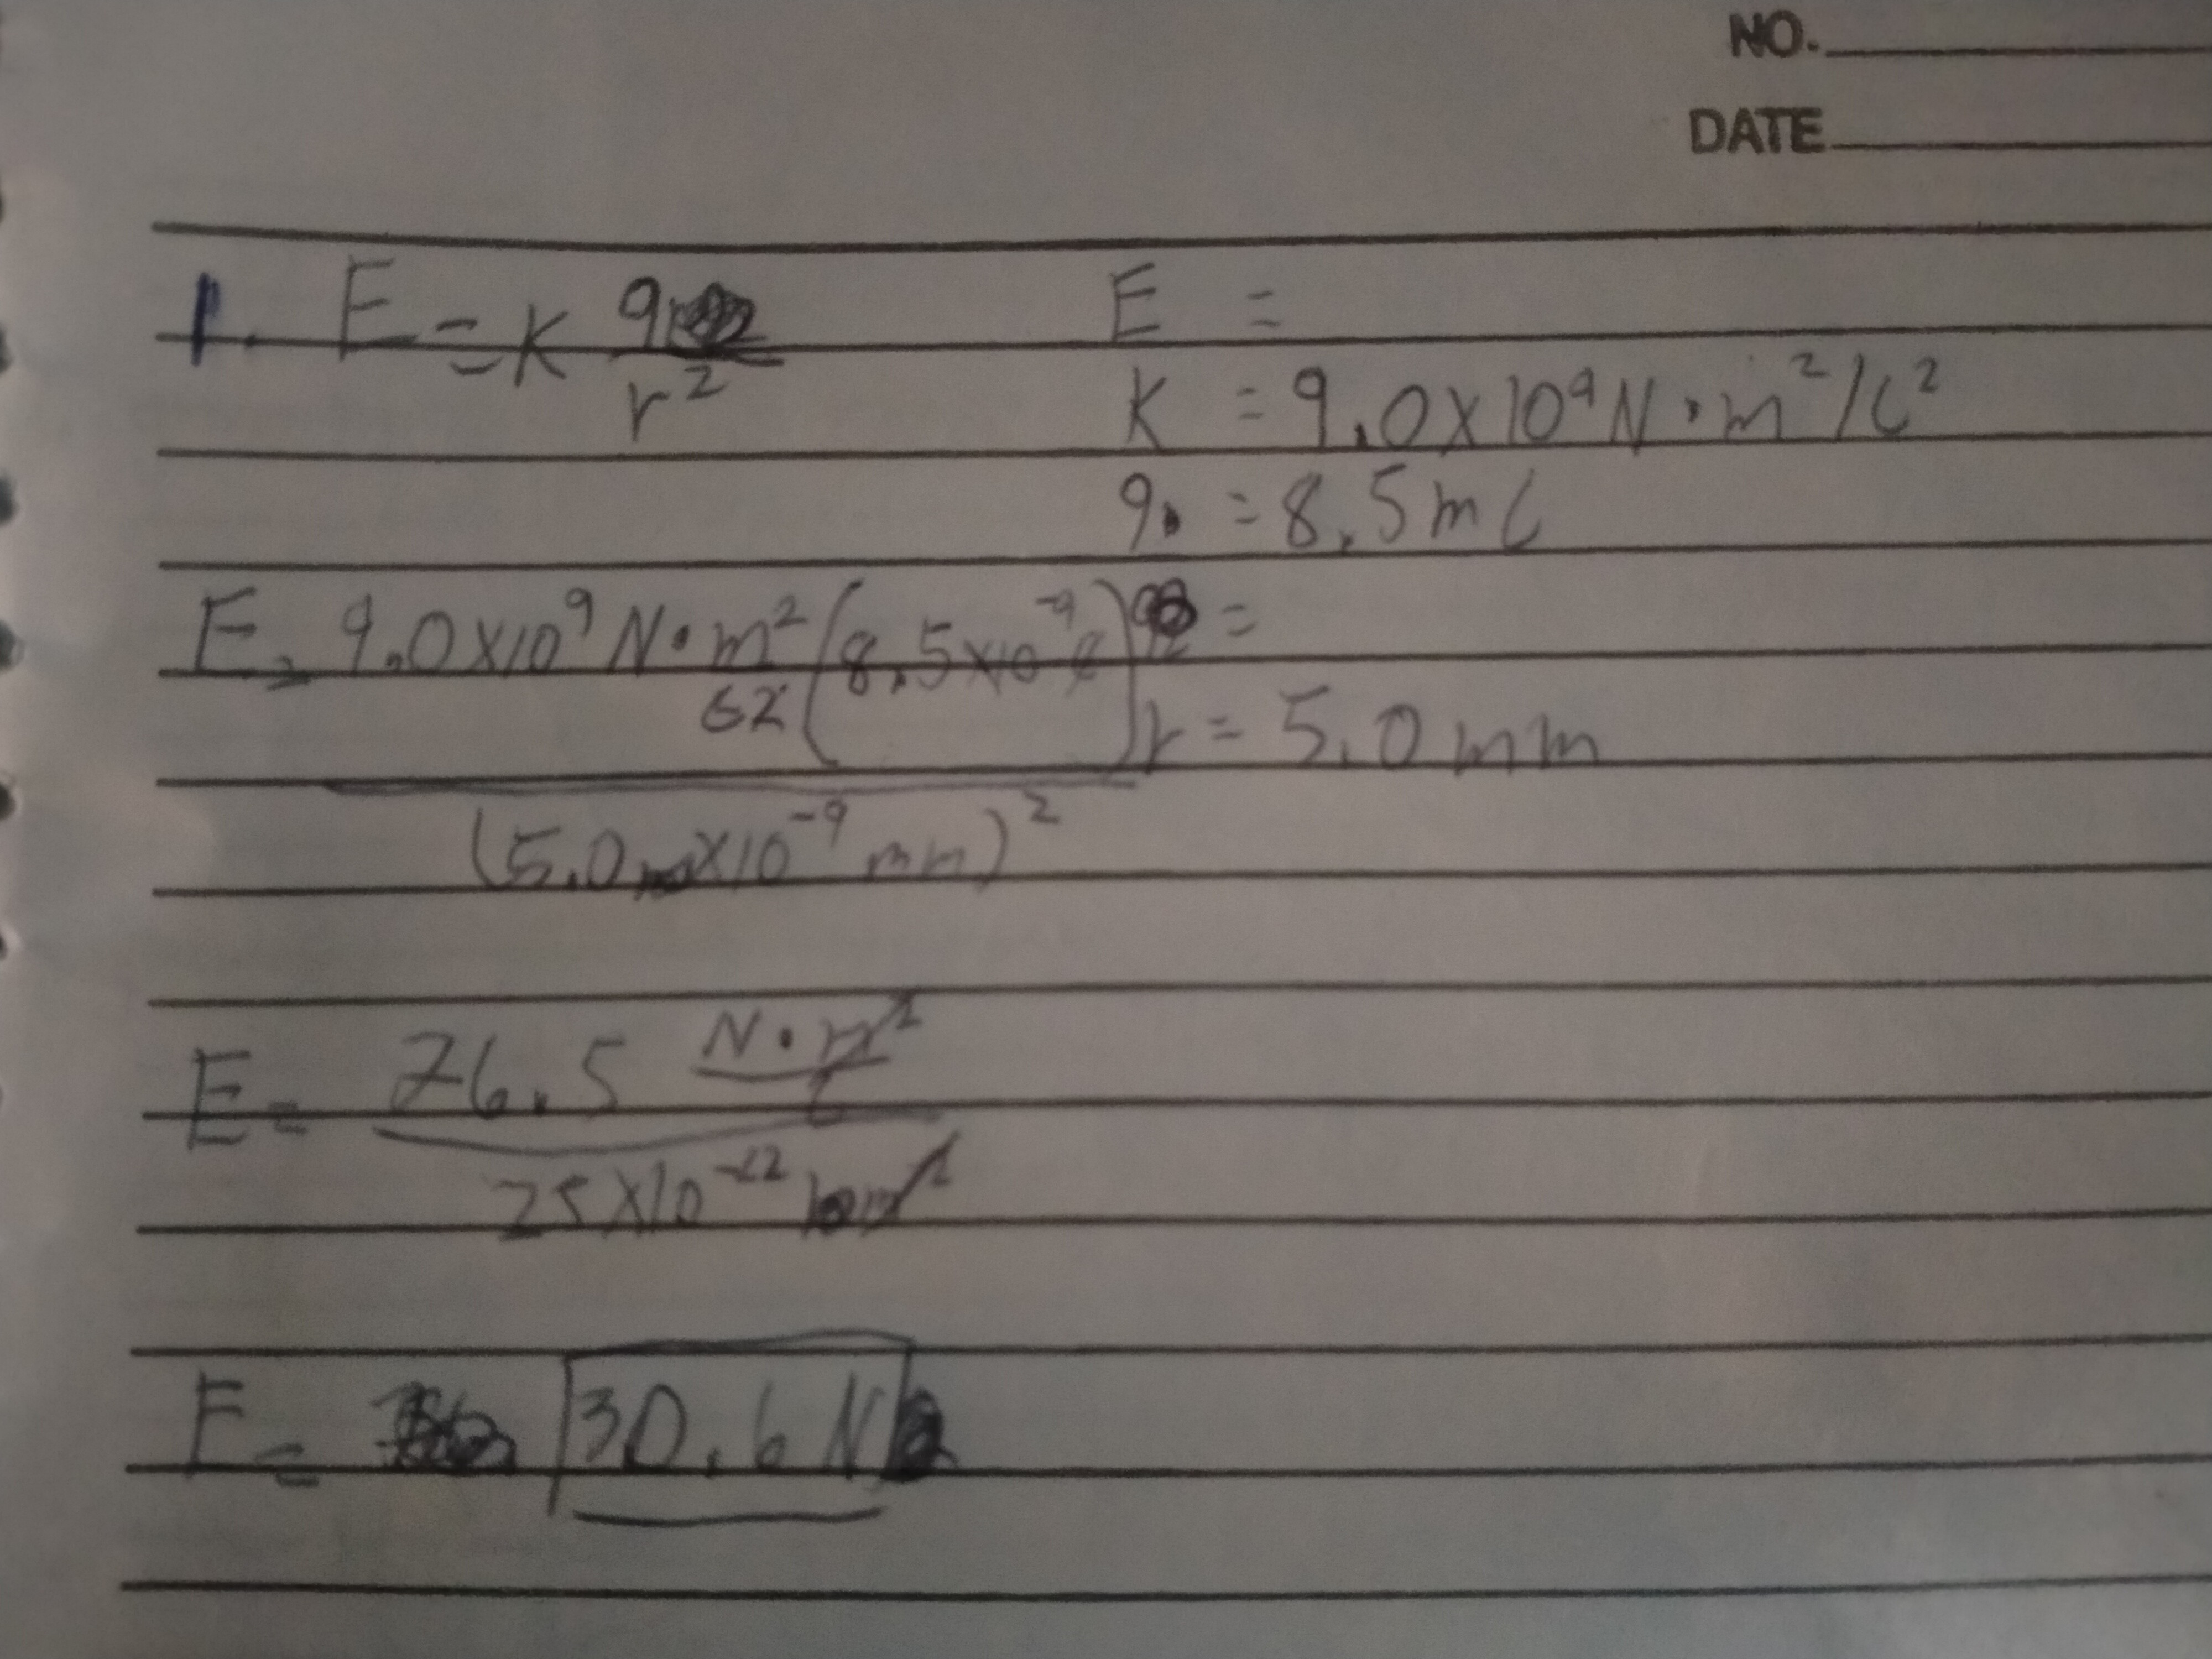 NO.
DATE
1. E = K q / r²
E =
K = 9.0 X 10⁹ N · m² / C²
q = 8.5 m C
E = 9.0 X 10⁹ N · m² / C² (8.5 X 10⁻⁹ C)
=
r = 5.0 mm
(5.0 X 10⁻⁹ mm)²
E = 76.5 N · m² / C
25 X 10⁻²² m²
E = 30.6 N